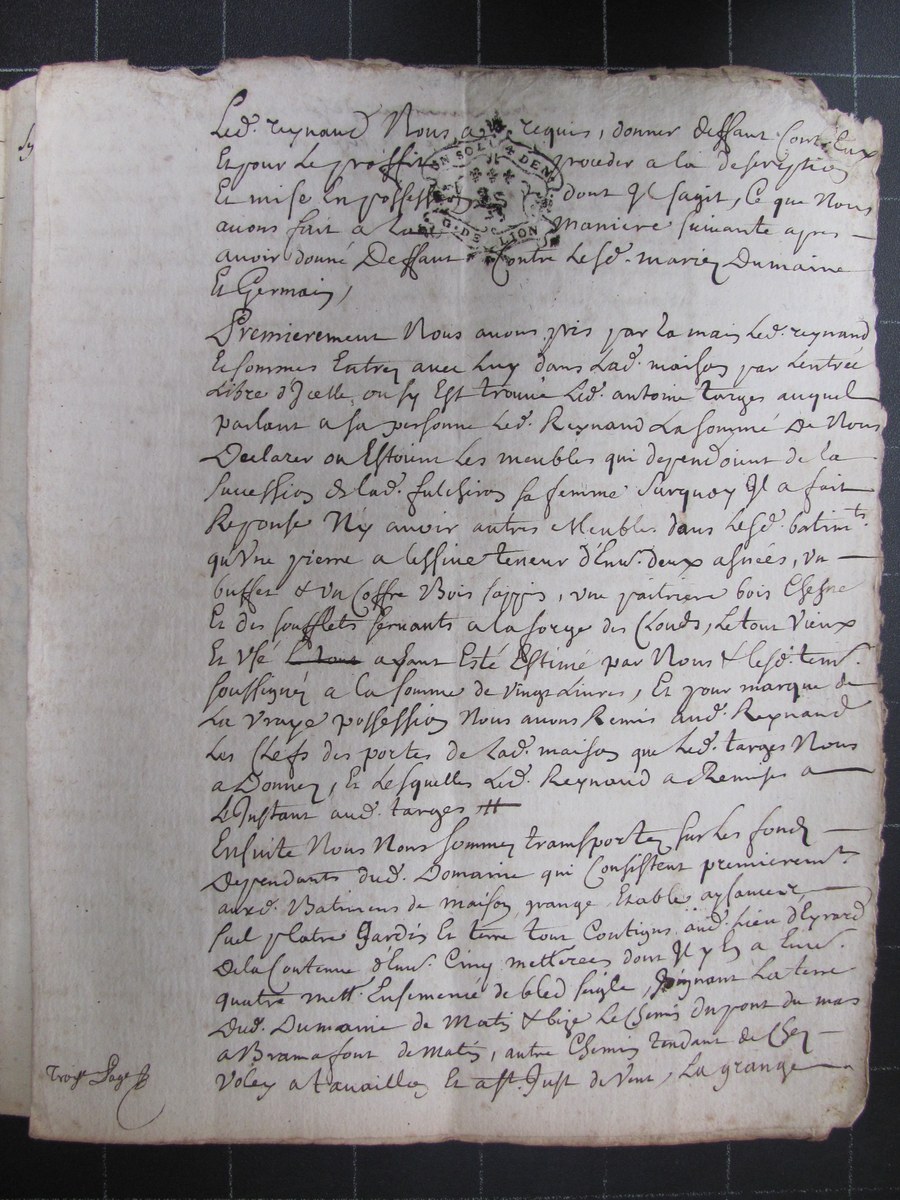 Led. reynaud Nous a requis, donner deffaut Contr'Eux
Et pour Le proffit proceder a la description
Et mise En possession dont Jl sagit, Ce que Nous
avons fait a La maniere suivante apres
avoir donné Deffaut Contre Lesd. mariez Dumaine
Et Germain,
Premierement Nous avons pris par la main Led. reynaud
Et sommes Entrez avec Luy dans Lad. maison par Lentrée
Libre d'Jcelle, ou sy Est trouvé Led. antoine targes auquel
parlant a sa personne Led. Reynaud La sommé De Nous
Declarer ou Estoient Les meubles qui dependoient de la
sucession de lad. fulchiron sa femme Surquoy Jl a fait
Reponse N'y avoir autres Meubles dans Lesd. batimts.
qu'Vne pierre a lessive teneur d'Env. deux asnées, un
buffet & un Coffre Bois sappin, une paitriere bois Chesne
Et des soufflets servants a la forge des Clouds, Le tout Vieux
Et Vsé ayant Esté Estimé par Nous & lesd. tem.
soussignez a la somme de vingt Livres, Et pour marque de
La Vraye possession Nous avons Remis aud. Reynaud
Les Clefs des portes de Lad. maison que Led. targes Nous
a Donnez, Et Lesquelles Led. Reynaud a Remises a
L'Jnstant aud. targes
Ensuite Nous Nous sommes transportez sur Les fondz
Dependants dud. Domaine qui Consistent premieremt.
auxd. Batimens de maison grange Etables aysances
suel platre Jardin Et terre tout Contigus aud. Lieu d'Eyrard
De la Contenue d'Env. Cinq metterées dont Jl y En a Env.
quatre mett. Ensemencé de bled seigle, Joignant La terre
Dud. Dumaine de Matin & bize Le Chemin du pont du mas
a Bramafont de Matin, autre Chemin tendant de Chez
Voley a tavaillon Et a st. Just de Vent, La grange
Troise. Page
EN SOL DEN
G. DE LION